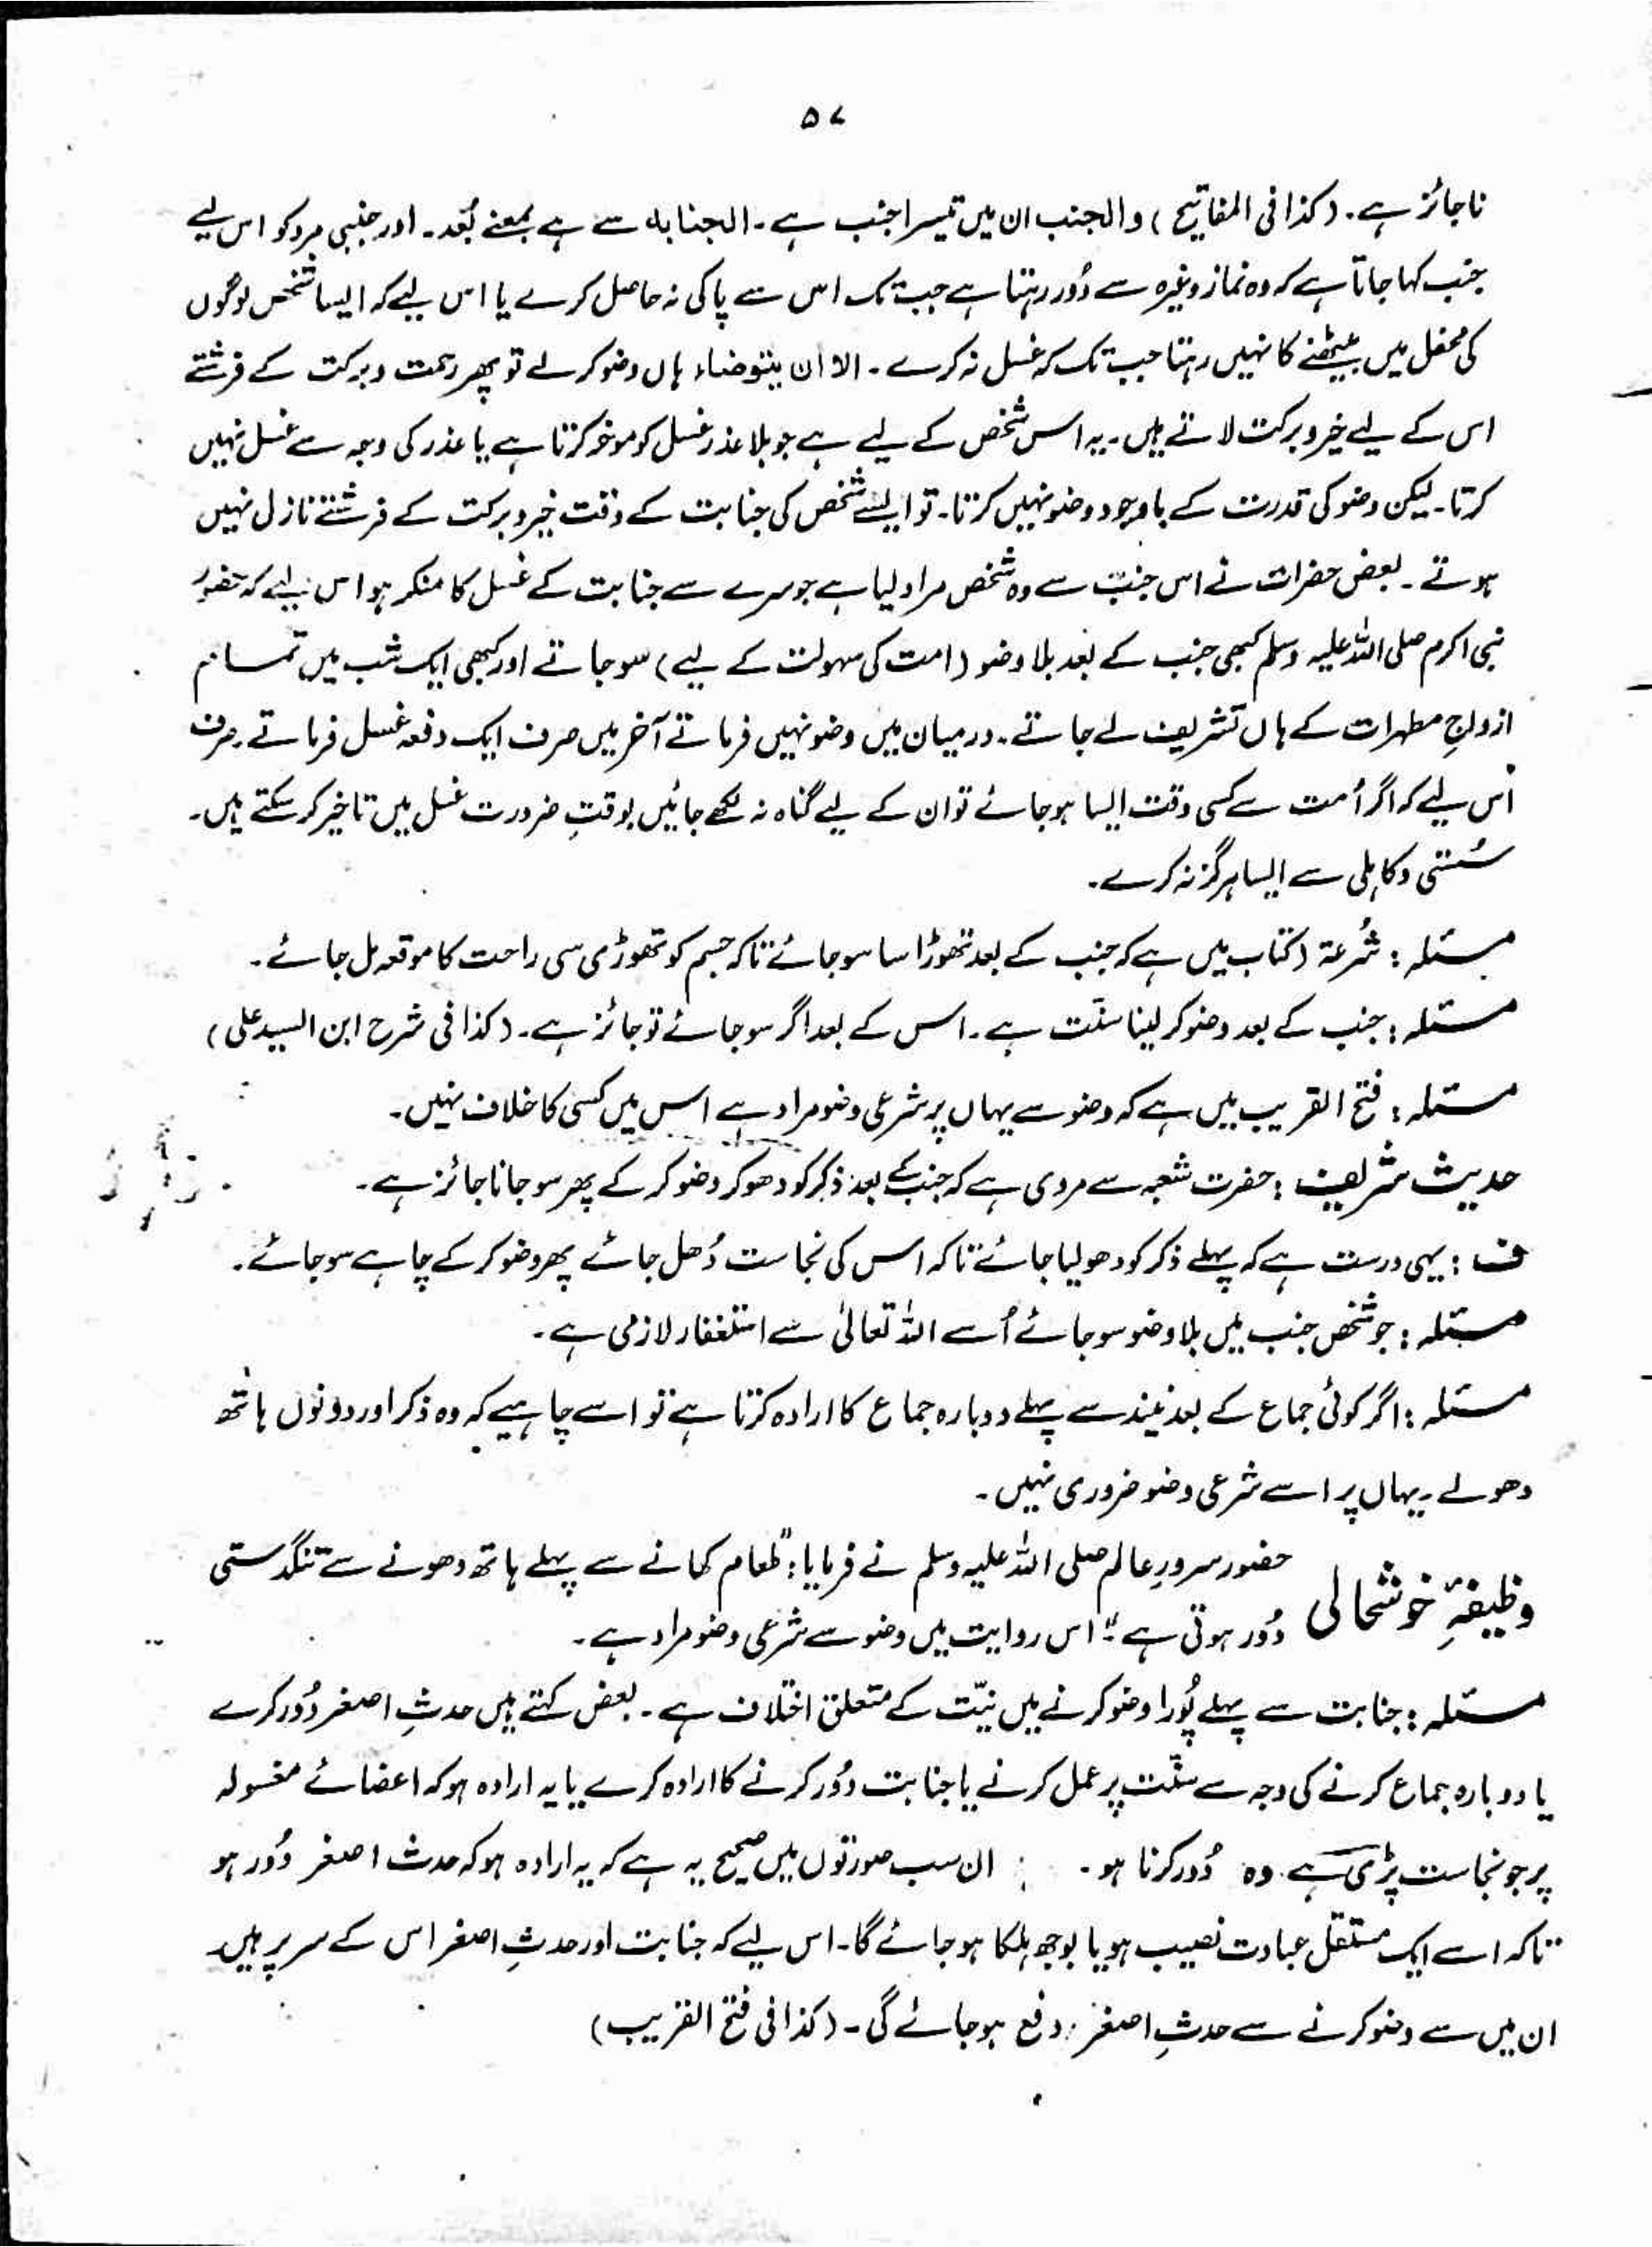 ۵۷
ناجائز ہے۔ (کذا فی المفاتیح) والجنب ان میں تیسرا جنب ہے۔ الجنابہ سے ہے بمعنے بُعد۔ اور جنبی مرد کو اس لیے
جنب کہا جاتا ہے کہ وہ نماز وغیرہ سے دُور رہتا ہے جب تک اس سے پاکی نہ حاصل کرے یا اس لیے کہ ایسا شخص لوگوں
کی محفل میں بیٹھنے کا نہیں رہتا جب تک کہ غسل نہ کرے۔ الا ان یتوضاء ہاں وضو کر لے تو پھر رحمت و برکت کے فرشتے
اس کے لیے خیر و برکت لاتے ہیں۔ یہ اس شخص کے لیے ہے جو بلا عذر غسل کو موخر کرتا ہے یا عذر کی وجہ سے غسل نہیں
کرتا۔ لیکن وضو کی قدرت کے باوجود وضو نہیں کرتا۔ تو ایسے شخص کی جنابت کے وقت خیر و برکت کے فرشتے نازل نہیں
ہوتے۔ بعض حضرات نے اس جنب سے وہ شخص مراد لیا ہے جو سرے سے جنابت کے غسل کا منکر ہو اس لیے کہ حضور
نبی اکرم صلی اللہ علیہ وسلم کبھی جنب کے بعد بلا وضو (امت کی سہولت کے لیے) سو جاتے اور کبھی ایک شب میں تمام
ازواجِ مطہرات کے ہاں تشریف لے جاتے۔ درمیان میں وضو نہیں فرماتے آخر میں صرف ایک دفعہ غسل فرماتے۔ صرف
اس لیے کہ اگر اُمت سے کسی وقت ایسا ہو جائے تو ان کے لیے گناہ نہ لکھے جائیں بوقتِ ضرورت غسل میں تاخیر کر سکتے ہیں۔
سُستی و کاہلی سے ایسا ہرگز نہ کرے۔
مسئلہ: شُرعۃ (کتاب میں ہے کہ جنب کے بعد تھوڑا سا سو جائے تاکہ جسم کو تھوڑی سی راحت کا موقعہ مل جائے۔
مسئلہ: جنب کے بعد وضو کر لینا سنّت ہے۔ اس کے بعد اگر سو جائے تو جائز ہے۔ (کذا فی شرح ابن السید علی)
مسئلہ: فتح القریب میں ہے کہ وضو سے یہاں پر شرعی وضو مراد ہے اس میں کسی کا خلاف نہیں۔
حدیث شریف: حضرت شعبہ سے مروی ہے کہ جنب کے بعد ذکر کو دھو کر وضو کر کے پھر سو جانا جائز ہے۔
ف: یہی درست ہے کہ پہلے ذکر کو دھو لیا جائے تاکہ اس کی نجاست دُھل جائے پھر وضو کر کے چاہے سو جائے۔
مسئلہ: جو شخص جنب میں بلا وضو سو جائے اُسے اللہ تعالیٰ سے استغفار لازمی ہے۔
مسئلہ: اگر کوئی جماع کے بعد نیند سے پہلے دوبارہ جماع کا ارادہ کرتا ہے تو اسے چاہیے کہ وہ ذکر اور دونوں ہاتھ
دھولے۔ یہاں پر اسے شرعی وضو ضروری نہیں۔
وظیفۂِ خوشحالی حضور سرورِ عالم صلی اللہ علیہ وسلم نے فرمایا: "طعام کھانے سے پہلے ہاتھ دھونے سے تنگدستی
دُور ہوتی ہے۔" اس روایت میں وضو سے شرعی وضو مراد ہے۔
مسئلہ: جنابت سے پہلے پُورا وضو کرنے میں نیّت کے متعلق اختلاف ہے۔ بعض کہتے ہیں حدثِ اصغر دُور کرے
یا دوبارہ جماع کرنے کی وجہ سے سنّت پر عمل کرنے یا جنابت دُور کرنے کا ارادہ کرے یا یہ ارادہ ہو کہ اعضائے مغسولہ
پر جو نجاست پڑی ہے وہ دُور کرنا ہو۔ ان سب صورتوں میں صحیح یہ ہے کہ یہ ارادہ ہو کہ حدث اصغر دُور ہو
تاکہ اسے ایک مستقل عبادت نصیب ہو یا بوجھ ہلکا ہو جائے گا۔ اس لیے کہ جنابت اور حدثِ اصغر اس کے سر پر ہیں۔
ان میں سے وضو کرنے سے حدثِ اصغر دفع ہو جائے گی۔ (کذا فی فتح القریب)